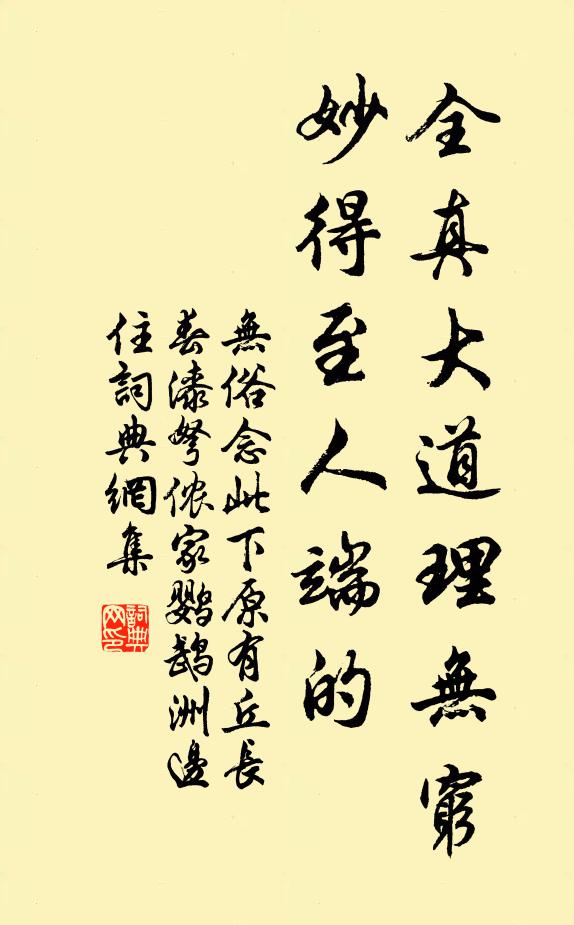 全真大道理無窮
妙得至人端的
無俗念此下原有丘長
春漆弩侬家鹦鹉洲邊
住詞典網集
詞典
网印